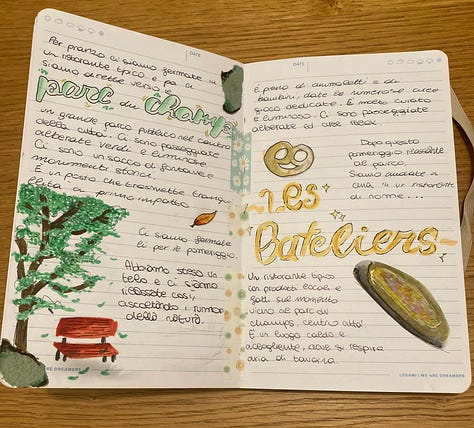 DATE
Per pranzo ci siamo fermate in
un ristorante tipico e poi ci
siamo dirette verso il
parc du champ
un grande parco pubblico nel centro
della città. Ci sono passeggiate
alberate verdi e luminose.
Ci sono un sacco di fontane e
monumenti storici.
È un posto che trasmette tranquil
lità a primo impatto.
Ci siamo fermate
lì per il pomeriggio.
Abbiamo steso un
telo e ci siamo
rilassate così,
ascoltando i rumori
della natura.
WE ARE DREAMERS
DATE
È pieno di animaletti e di
bambini, date le numerose aree
gioco dedicate. È molto curato
e luminoso. Ci sono passeggiate
alberate ed aree relax.
Dopo questo
pomeriggio rilassante
al parco.
Siamo andate a
cena in un ristorante
di nome....
Les
Bateliers
Un ristorante tipico
con prodotti locali e
fatti sul momento
vicino al parc du
champs, centro città.
È un luogo caldo e
accogliente, dove si respira
aria di taverna.
LEGAMI | WE ARE DREAMERS